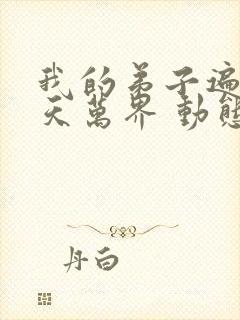 我的弟子遍
天萬界 動態
丹白